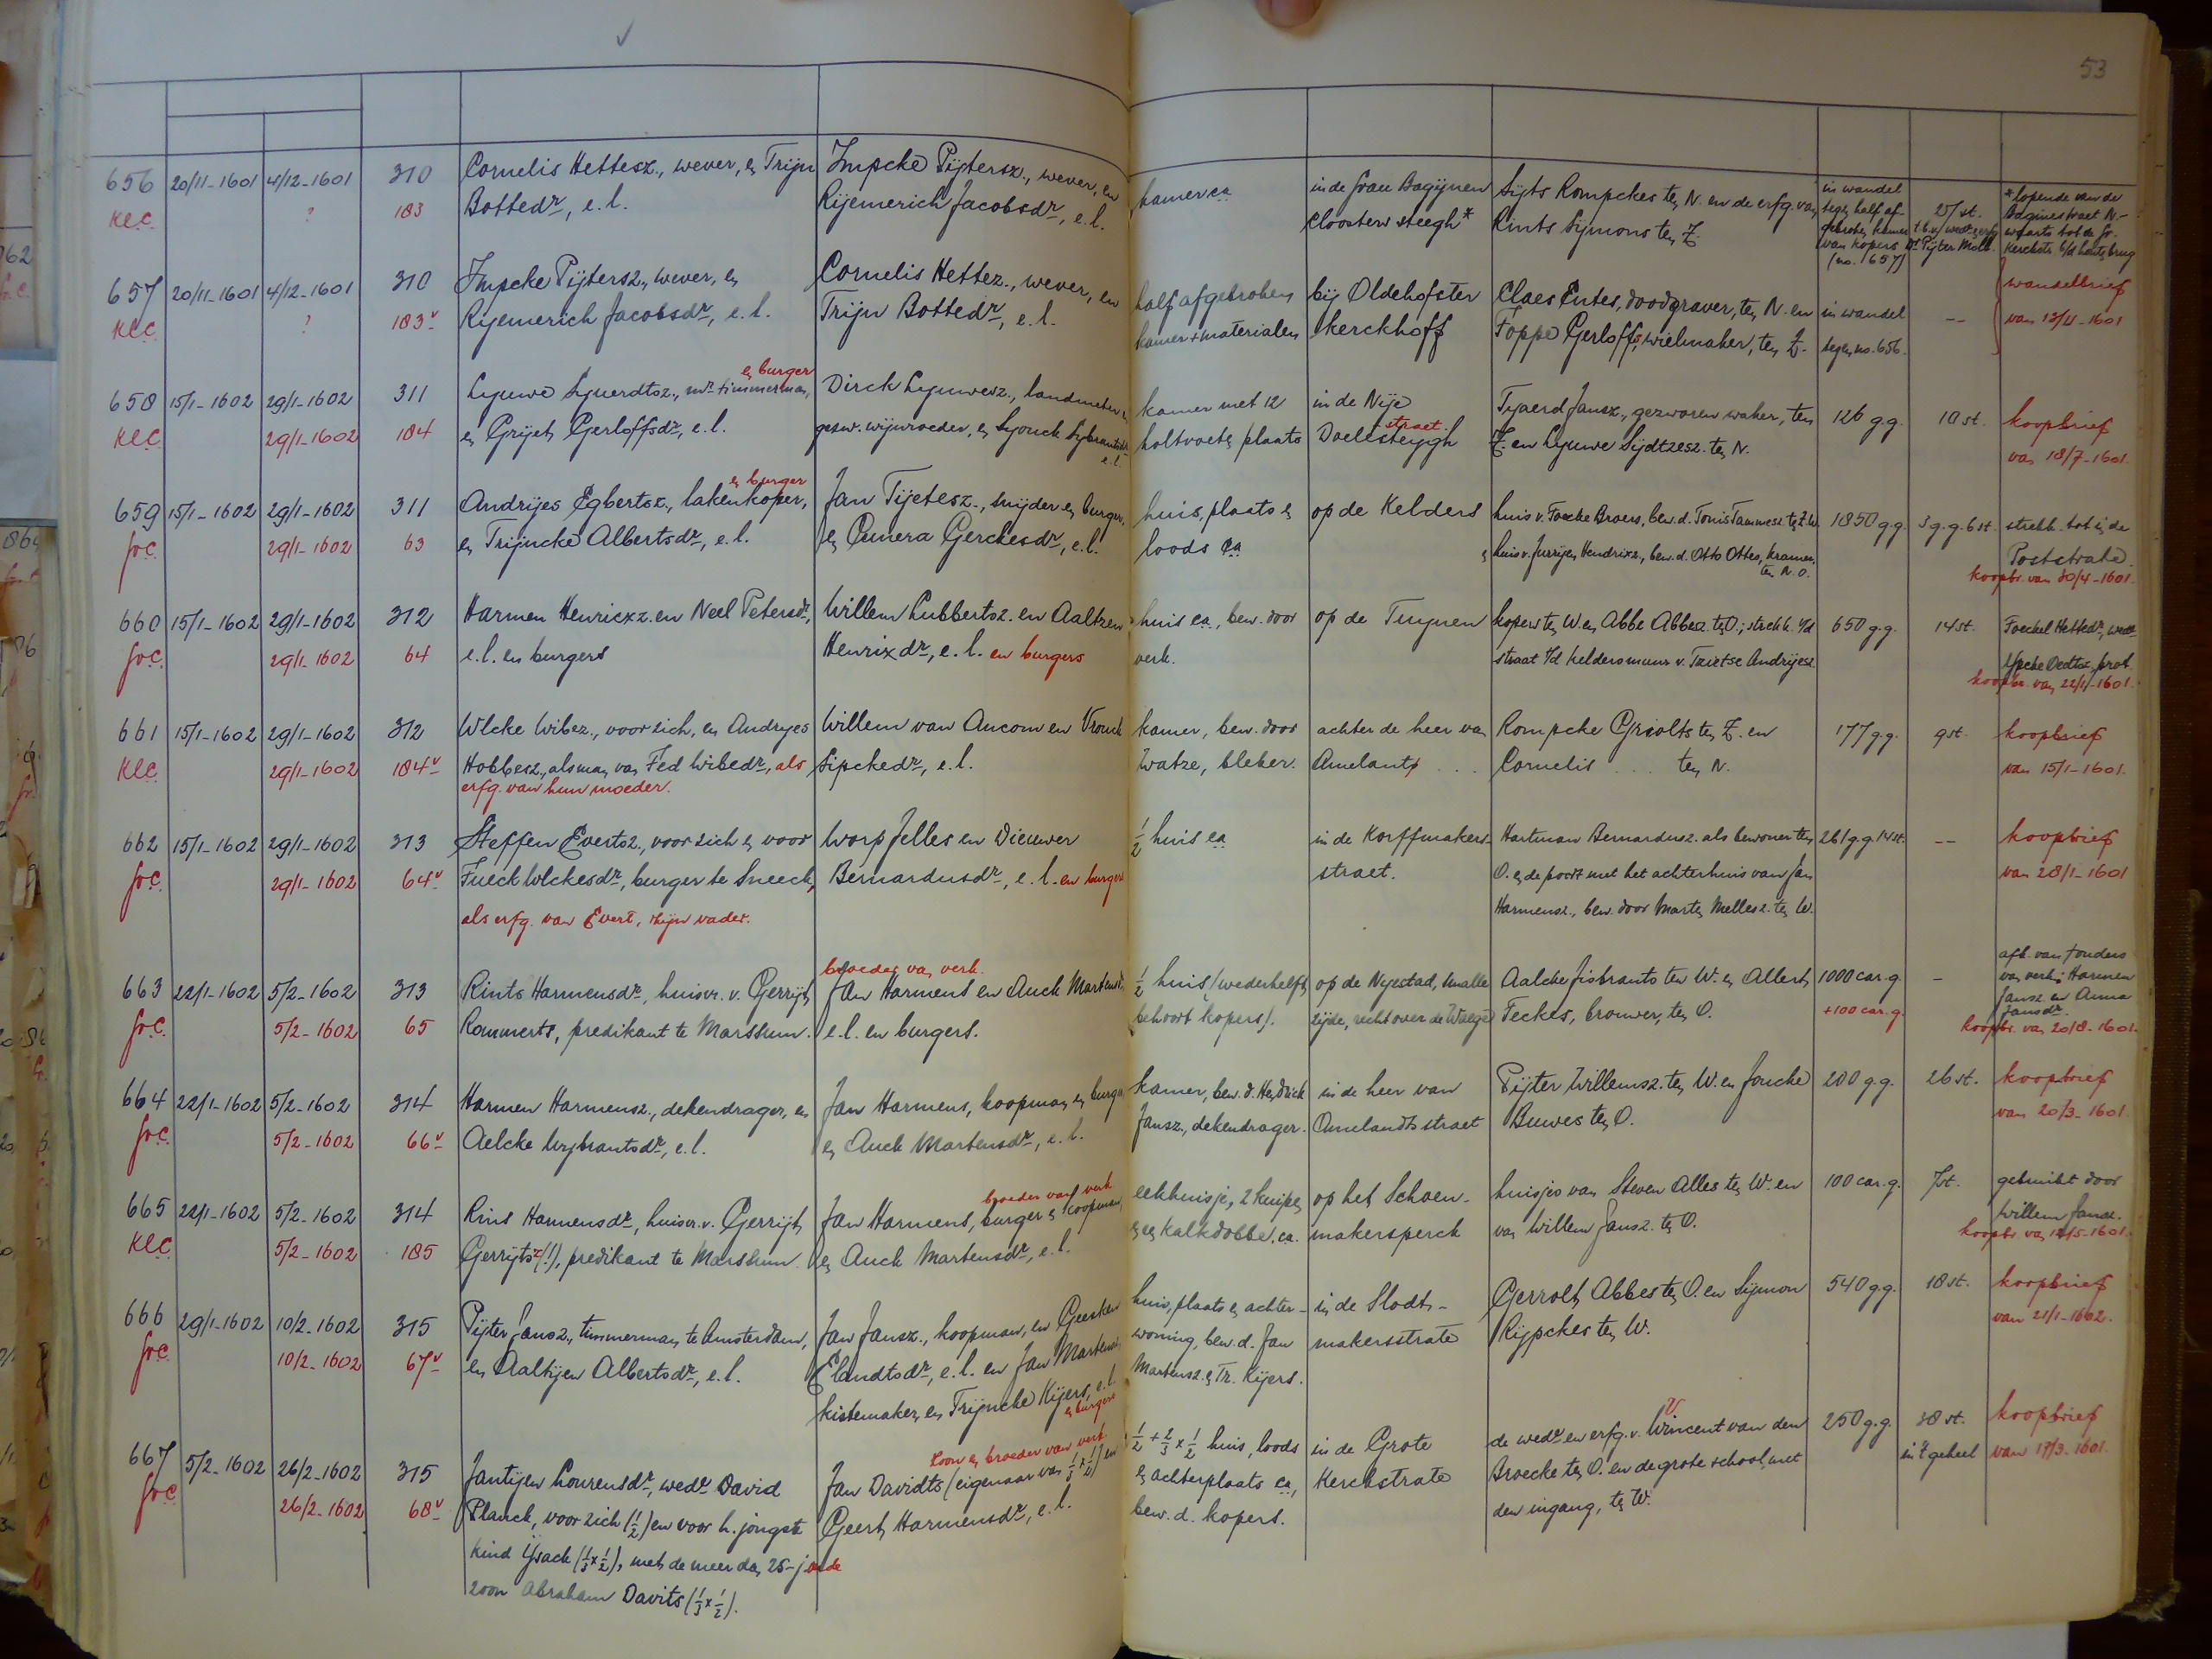 53
656 20/11-1601 4/12-1601 310 Cornelis Hettesz., wever, en Trijn Impcke Pijtersz., wever, en kamer ca in de Grau Bagijnen Sijts Rompckes ten N. en de erfg. van in wandel 27 st. * lopende van de
KLC ? 183 Bottedr, e.l. Rijemerich Jacobsdr, e.l. clooster steegh* Rints Sijmons ten Z. tegen half af- Baginestraet N.-
gebroken kamer waarts tot de Gr.
van kopers Pijter Kerckstr. b/d houten brug
(no. 657)
657 20/11-1601 4/12-1601 310 Impcke Pijtersz., wever, en Cornelis Hettez., wever, en half afgebroken bij Oldehofster Claes Entes, doodgraver, ten N. en in wandel -- wandelbrief
KLC ? 183v Rijemerich Jacobsdr, e.l. Trijn Bottedr, e.l. kamer + materialen kerckhoff Foppe Gerloffs, wielmaker, ten Z. tegen no. 656. van 13/11-1601
en burger
658 15/1-1602 29/1-1602 311 Lyuwe Sjuerdtsz., mr. timmerman, Dirck Lyuwesz., landmeter kamer met 12 in de Nije Tjaerd Jansz., gezworen waker, ten 126 g.g. 10 st. koopbrief
straet
KLC 29/1-1602 184 en Grijet Gerloffsdr, e.l. gezw. wijnroeder, en Sjouck Sybrantsdr holtvoeten plaats Doelesteygh Z. en Lyuwe Sijdtzesz. ten N. van 18/7-1601.
e.l.
en burger
659 15/1-1602 29/1-1602 311 Andries Egbertsz., lakenkoper, Jan Tijetesz., snijder en burger, huis, plaats en op de Kelders huis v. Foecke Broers, bew. d. Tonis Tammesz. ten Z.W. 1850 g.g. 3 g.g. 6 st. strekk. tot in de
Gr.C. 29/1-1602 63 en Trijncke Albertsdr, e.l. en Cunera Gerckesdr, e.l. loods ca en huis v. Jurrijen Hendrixz., bew. d. Otto Ottes, kramer, Poststrate.
ten N.O. koopbr. van 30/4-1601.
660 15/1-1602 29/1-1602 312 Harmen Henricxz. en Neel Petersdr, Willem Lubbertsz. en Aaltzen huis ca, bew. door op de Tuynen kopers ten W. en Abbe Abbesz. ten O.; strekk. v/d 650 g.g. 14 st. Foeckel Hettedr, wedr
Gr.C. 29/1-1602 64 e.l. en burgers Henrixdr, e.l. en burgers verk. straat t/d keldersmuur v. Tzietse Andrijesz. Ypcke Oedtsz., prot.
koopbr. van 22/1-1601.
661 15/1-1602 29/1-1602 312 Wlcke Wibez., voor zich, en Andryes Willem van Aucom en Vrouck kamer, bew. door achter de heer van Rompcke Griolts ten Z. en 177 g.g. 9 st. koopbrief
KLC 29/1-1602 184v Hobbesz., als man van Fed Wibedr, als Sipckedr, e.l. Watze, bleker. Amelant ... Cornelis .... ten N. van 15/1-1601.
erfg. van hun moeder.
662 15/1-1602 29/1-1602 313 Steffen Evertsz., voor zich en voor Worp Jelles en Dieuwer 1/2 huis ca in de Korffmakers- Hartman Bernardusz. als bewoner ten 261 g.g. 14 st. -- koopbrief
Gr.C. 29/1-1602 64v Fueck Wlckesdr, burger te Sneeck, Bernardusdr, e.l. en burgers straet. O. en de poort met het achterhuis van Jan van 28/1-1601
als erfg. van Evert, zijn vader. Harmensz., bew. door Marten Mellesz. ten W.
broeder van verk. afk. van ouders
663 22/1-1602 5/2-1602 313 Rints Harmensdr, huisvr. v. Gerrijt Jan Harmens en Auck Martensdr, 1/2 huis (wederhelft op de Nyestad, smalle Aalcke Jisbrants ten W. en Allert 1000 car.g. - van verk.: Harmen
Gr.C. 5/2-1602 65 Rommerts, predikant te Marssum. e.l. en burgers. behoort kopers). zijde, recht over de Waege Feckes, brouwer, ten O. +100 car.g. Jansz. en Anna Jansdr.
koopbr. van 20/8-1601.
664 22/1-1602 5/2-1602 314 Harmen Harmensz., dekendrager, en Jan Harmens, koopman en burger kamer, bew. d. Hendrick in de heer van Pijter Willemsz. ten W. en Joucke 200 g.g. 26 st. koopbrief
Gr.C. 5/2-1602 66v Aelcke Wybrantsdr, e.l. en Auck Martensdr, e.l. Jansz., dekendrager. Amelandts straet Buwes ten O. van 20/3-1601.
broeder van verk.
665 22/1-1602 5/2-1602 314 Rins Harmensdr, huisvr. v. Gerrijt Jan Harmens, burger en koopman, eekhuisje, 2 kuipen op het Schoen- huisjes van Steven Alles ten W. en 100 car.g. 7 st. gebruikt door
KLC 5/2-1602 185 Gerrijtsz (!), predikant te Marssum. en Auck Martensdr, e.l. en een kalkdobbe ca. makersperck van Willem Jansz. ten O. Willem Jansz.
koopbr. van 12/5-1601.
666 29/1-1602 10/2-1602 315 Pijter Jansz., timmerman te Amsterdam, Jan Jansz., koopman, en Geesken huis, plaats en achter- in de Slodt- Gerrolt Abbes ten O. en Sijmon 540 g.g. 18 st. koopbrief
Gr.C. 10/2-1602 67v en Aaltijen Albertsdr, e.l. Elandtsdr, e.l. en Jan Martensz woning, bew. d. Jan makersstrate Rijpckes ten W. van 21/1-1602.
kistemaker, en Trijncke Kijers, e.l. Martensz. en Tr. Kijers.
en burgers
zoon en broeder van verk. V
667 5/2-1602 26/2-1602 315 Jantijen Lourensdr, wedr David Jan Davidts (eigenaar van 1/3 x 1/2) en 1/2 + 2/3 x 1/2 huis, loods in de Grote de wedr en erfg. v. Wincent van den 250 g.g. 38 st. koopbrief
Gr.C. 26/2-1602 68v Planck, voor zich (1/2) en voor h. jongste Geert Harmensdr, e.l. en achterplaats ca, Kerckstrate Broecke ten O. en de grote school, met in 't geheel van 17/3-1601.
kind Ysack (1/3 x 1/2), met de meer dan 25-jarde bew. d. kopers. den ingang, ten W.
zoon Abraham Davits (1/3 x 1/2).